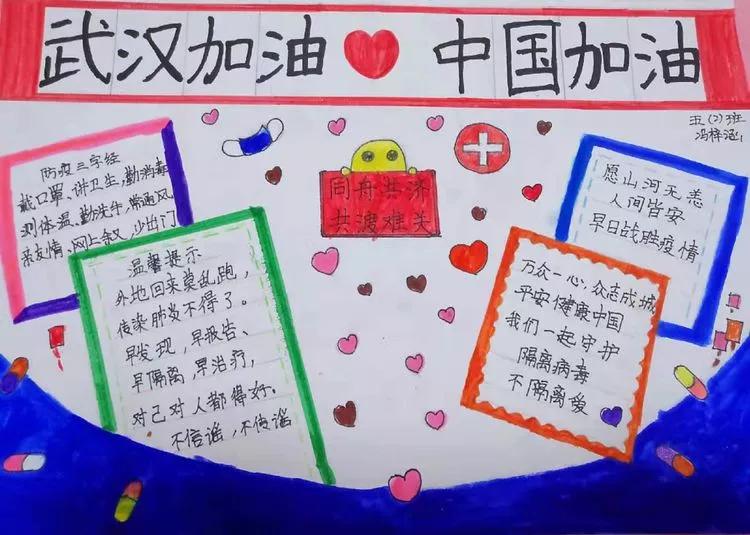 武汉加油 中国加油
五(2)班
冯梓涵
防疫三字经
戴口罩、讲卫生,勤消毒
测体温、勤洗手,常通风
亲友情、网上叙,少出门
同舟共济
共渡难关
愿山河无恙
人间皆安
早日战胜疫情
温馨提示
外地回来莫乱跑,
传染肺炎不得了。
早发现,早报告、
早隔离 早治疗,
对己对人都得好。
不信谣,不传谣
万众一心,众志成城
平安健康中国
我们一起守护
隔离病毒
不隔离爱